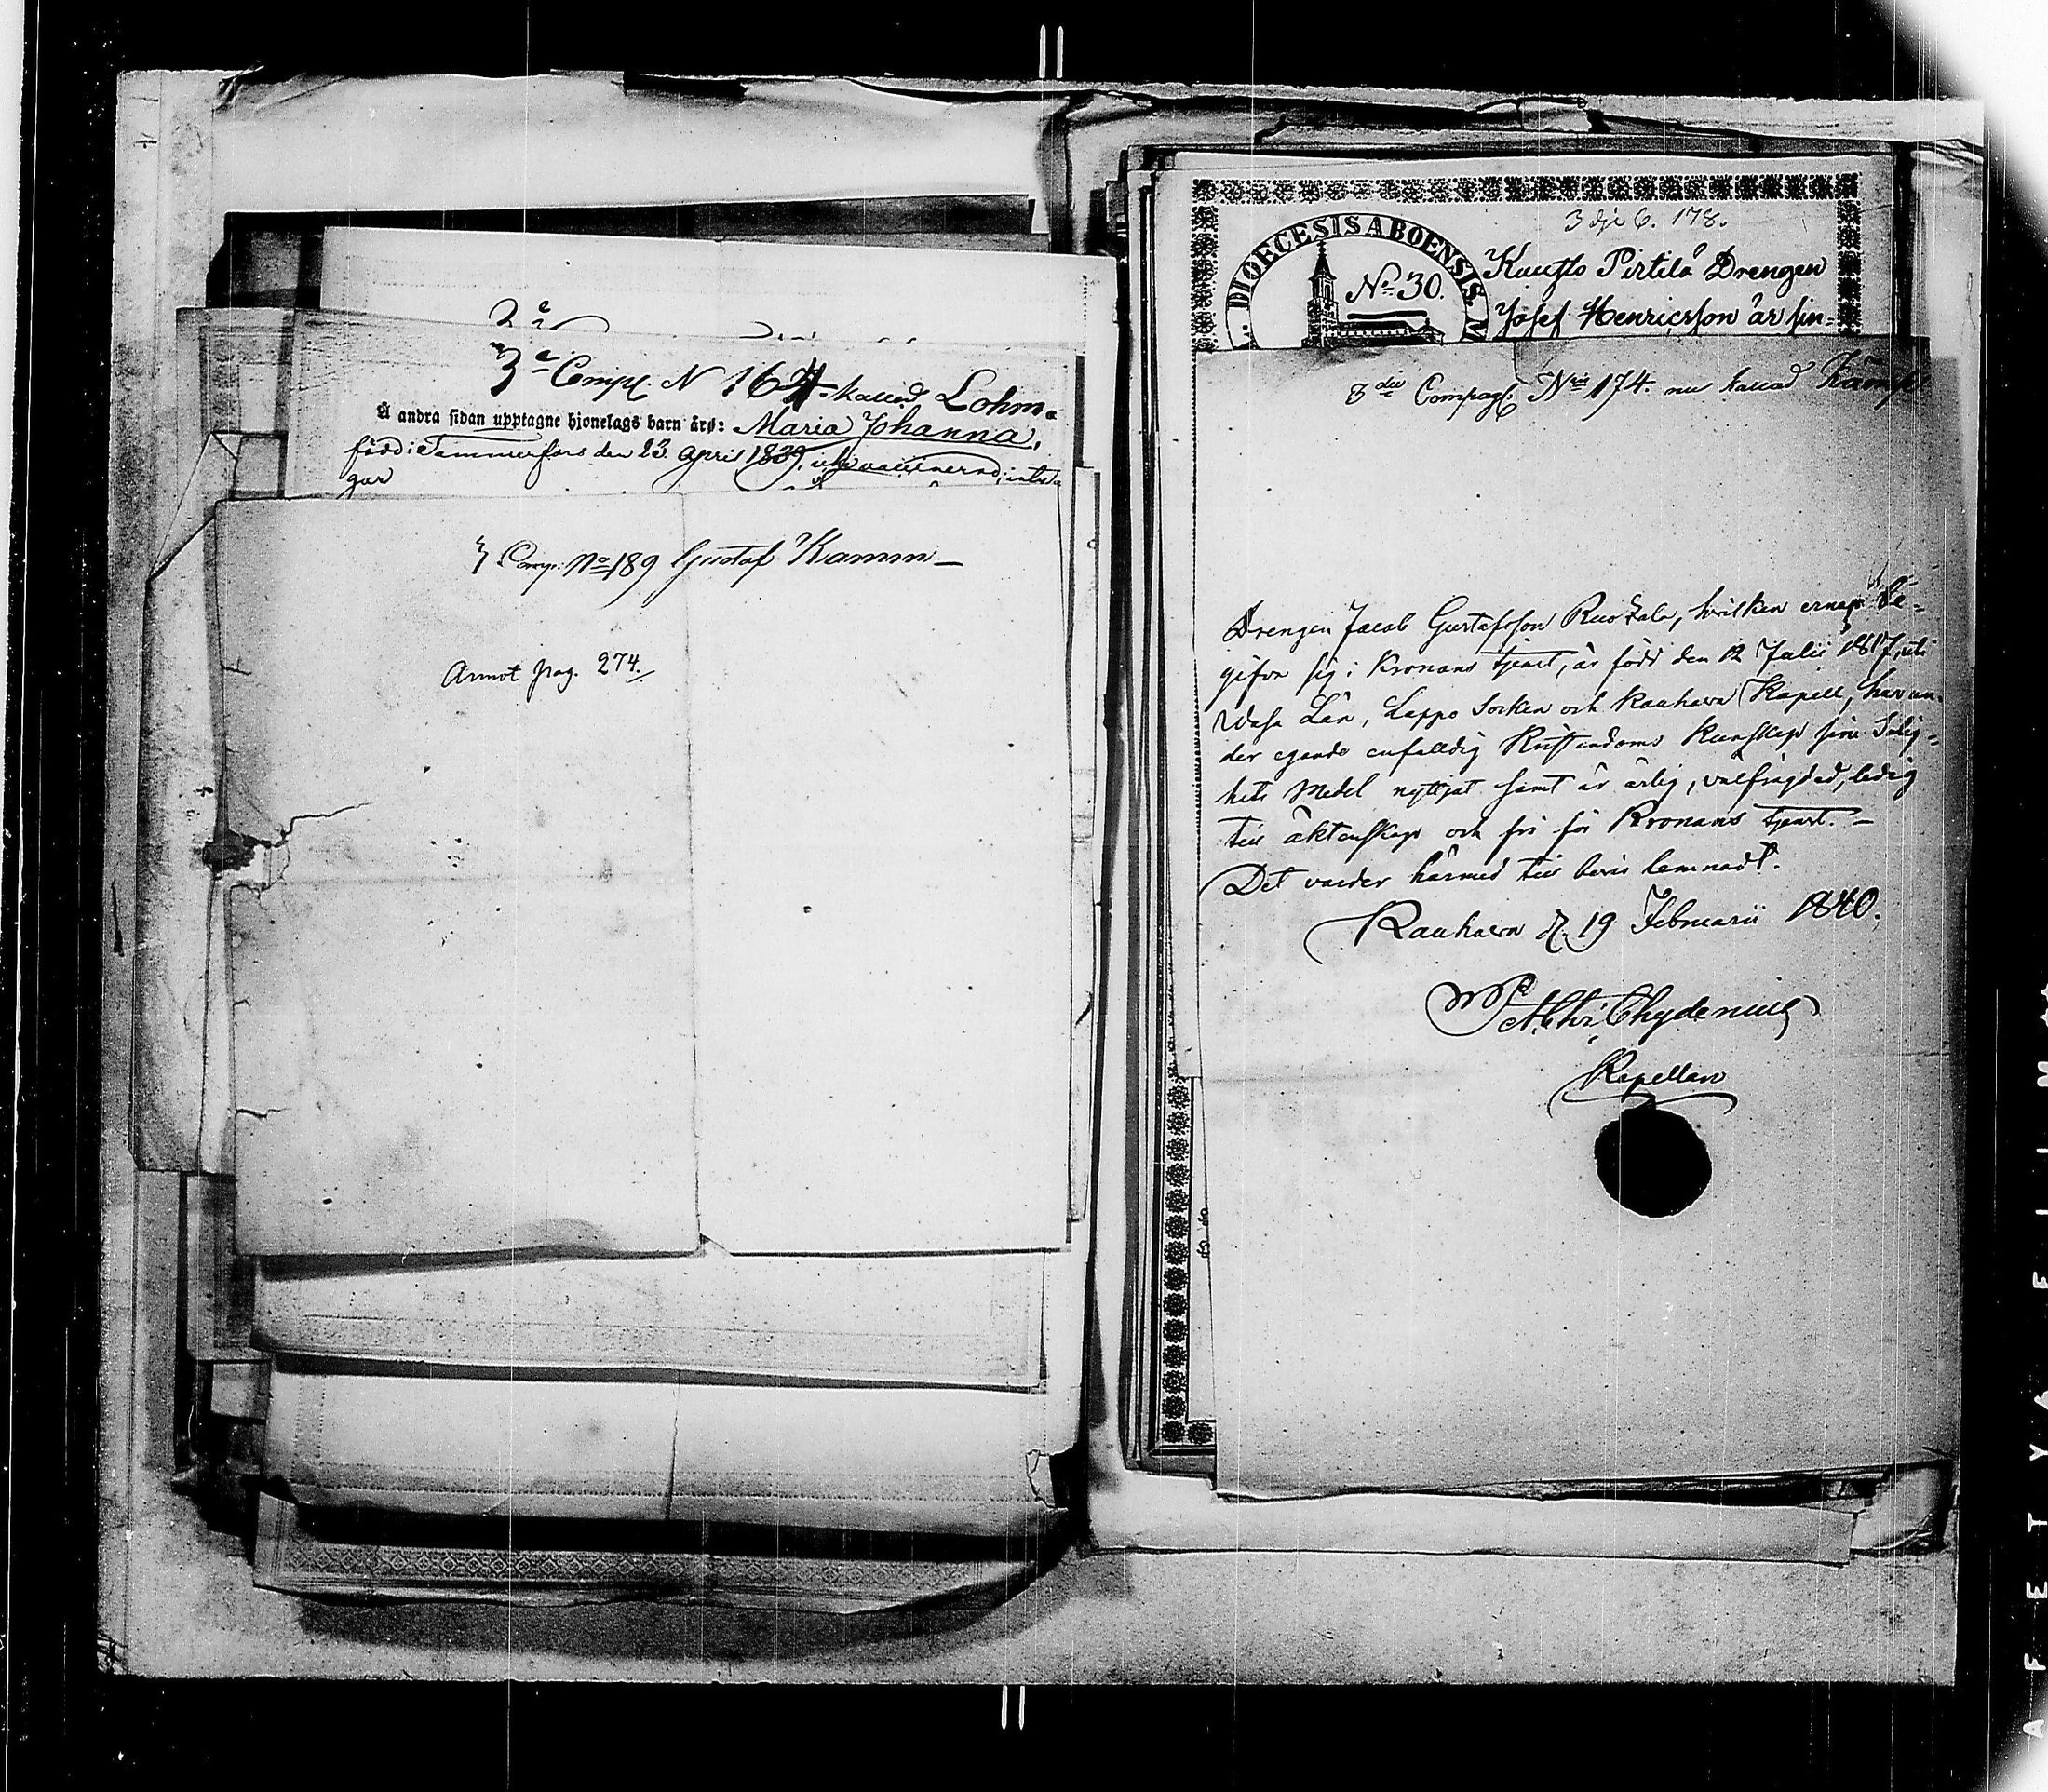 3a Comp. N 164 kallad Lohm.
Å andra sidan upptagne hjonelags barn äro: Maria Johanna,
född i Tammerfors den 23 April 1839, icke vaccinerad; intet
gar
3 Comp: No 189 Gustaf Kamm
Annot pag. 274.
3dje 6. 178.
DIOECESIS ABOENSIS
No 30.
Kaustlo Pirtilä Drengen
Josef Henricsson är sin=
3die Compag: Nris 174. nu kallad Kämpe
Drengen Jacob Gustafsson Ruotala, hvilken ernar be-
gifva sig i Kronans tjenst, är född den 12 Julii 1817 uti
Wasa Län, Lappo Socken och Kauhava Kapell, har un-
der egande enfaldig Kristendoms Kunskap sine Salig=
hets Medel nyttjat samt är ärlig, välfrägdad, ledig
till äktenskap och fri för Kronans tjenst. –
Det varder härmed till bevis lemnadt.
Kauhava d. 19 Februarii 1840.
Chydenius
Kapellan
AFETYA FEIM